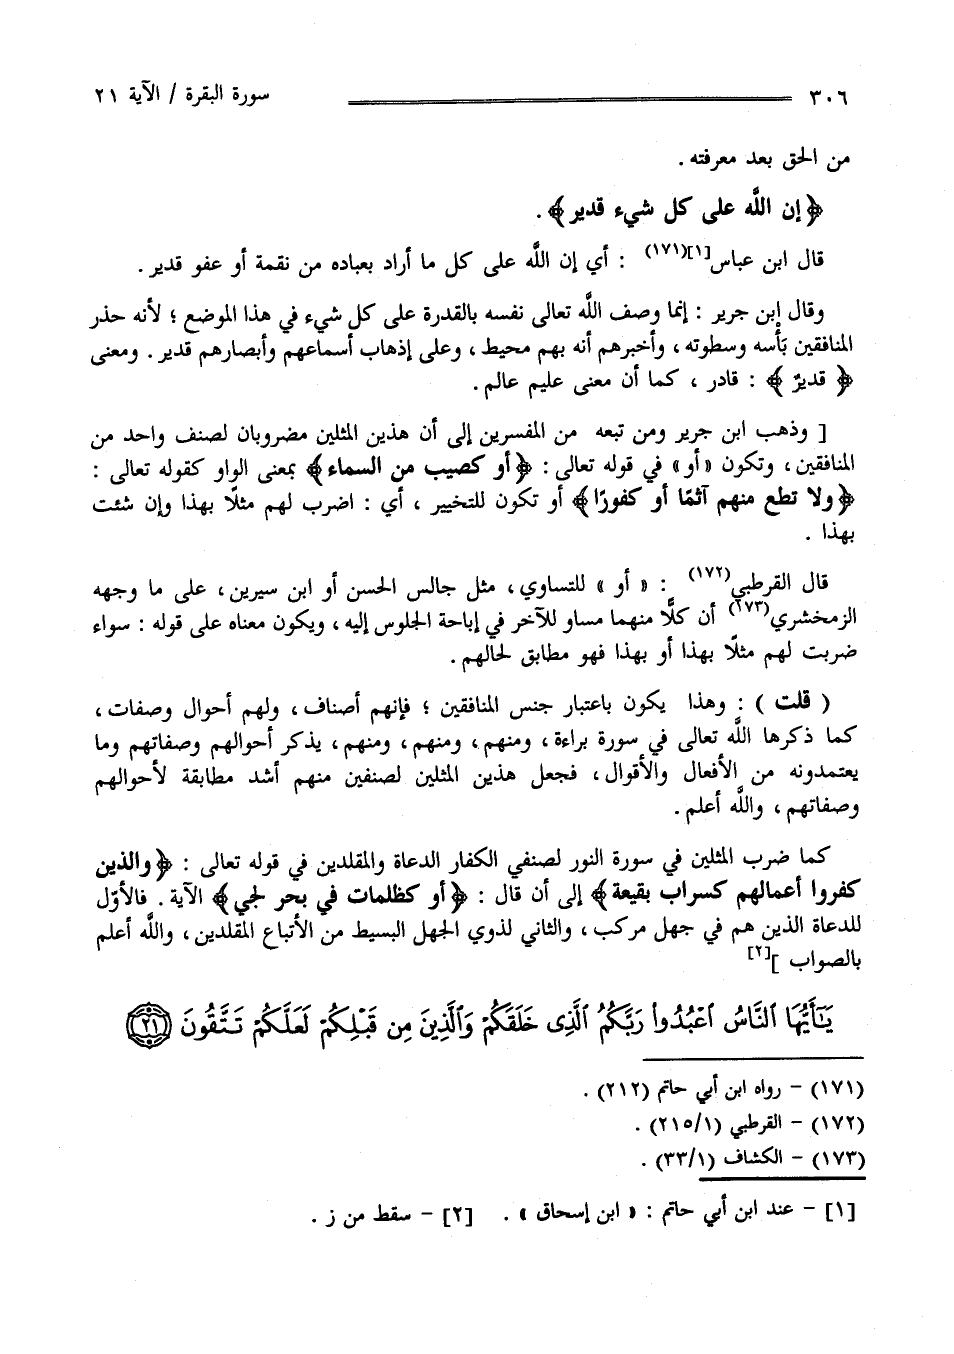 ٣٠٦ سورة البقرة / الآية ٢١
من الحق بعد معرفته .
﴿إن اللَّه على كل شيء قدير﴾ .
قال ابن عباس[١](١٧١) : أي إن اللَّه على كل ما أراد بعباده من نقمة أو عفو قدير .
وقال ابن جرير : إنما وصف اللَّه تعالى نفسه بالقدرة على كل شيء في هذا الموضع ؛ لأنه حذر
المنافقين بَأْسه وسطوته ، وأخبرهم أنه بهم محيط ، وعلى إذهاب أسماعهم وأبصارهم قدير . ومعنى
﴿ قديرٌ ﴾ : قادر ، كما أن معنى عليم عالم .
[ وذهب ابن جرير ومن تبعه من المفسرين إلى أن هذين المثلين مضروبان لصنف واحد من
المنافقين ، وتكون «أو» في قوله تعالى : ﴿أو كصيب من السماء﴾ بمعنى الواو كقوله تعالى :
﴿ولا تطع منهم آثمًا أو كفورًا﴾ أو تكون للتخيير ، أي : اضرب لهم مثلًا بهذا وإن شئت
بهذا .
قال القرطبي(١٧٢) : « أو » للتساوي ، مثل جالس الحسن أو ابن سيرين ، على ما وجهه
الزمخشري(١٧٣) أن كلًّا منهما مساو للآخر في إباحة الجلوس إليه ، ويكون معناه على قوله : سواء
ضربت لهم مثلًا بهذا أو بهذا فهو مطابق لحالهم .
( قلت ) : وهذا يكون باعتبار جنس المنافقين ؛ فإنهم أصناف ، ولهم أحوال وصفات ،
كما ذكرها اللَّه تعالى في سورة براءة ، ومنهم ، ومنهم ، ومنهم ، يذكر أحوالهم وصفاتهم وما
يعتمدونه من الأفعال والأقوال ، فجعل هذين المثلين لصنفين منهم أشد مطابقة لأحوالهم
وصفاتهم ، واللَّه أعلم .
كما ضرب المثلين في سورة النور لصنفي الكفار الدعاة والمقلدين في قوله تعالى : ﴿والذين
كفروا أعمالهم كسراب بقيعة﴾ إلى أن قال : ﴿أو كظلمات في بحر لجي﴾ الآية . فالأوّل
للدعاة الذين هم في جهل مركب ، والثاني لذوي الجهل البسيط من الأتباع المقلدين ، واللَّه أعلم
بالصواب ][٢]
يَٰٓأَيُّهَا ٱلنَّاسُ ٱعْبُدُوا۟ رَبَّكُمُ ٱلَّذِى خَلَقَكُمْ وَٱلَّذِينَ مِن قَبْلِكُمْ لَعَلَّكُمْ تَتَّقُونَ ٢١
(١٧١) - رواه ابن أبي حاتم (٢١٢) .
(١٧٢) - القرطبي (٢١٥/١) .
(١٧٣) - الكشاف (٣٣/١) .
[١] - عند ابن أبي حاتم : « ابن إسحاق » . [٢] - سقط من ز .